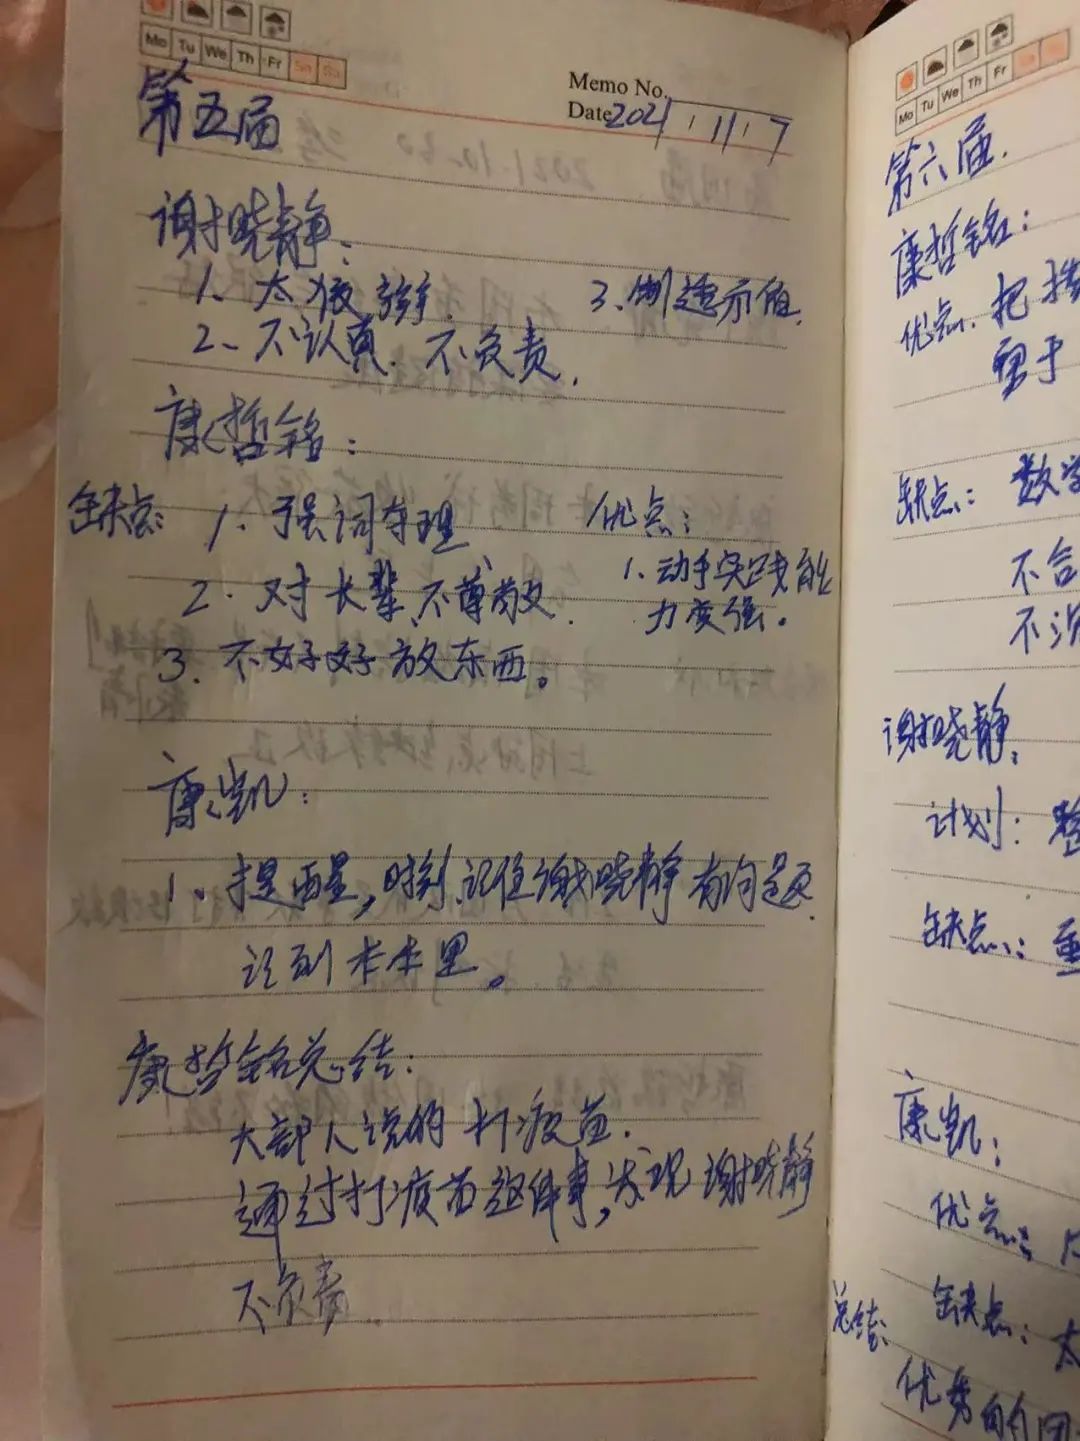 Mo Tu We Th Fr Sa Su
Memo No.
Date 2021 11 7
第五届
谢晓静:
1、太
3、制造
2、不认真. 不负责.
康哲铭:
缺点: 1、强词夺理
优点:
2. 对长辈不尊敬.
1、动手实践能
力变强。
3. 不好好放东西。
康凯:
1、提醒, 时刻记住谢晓静有问题.
记到本本里。
康哲铭总结:
大部人说的打疫苗.
通过打疫苗这件事, 发现谢晓静
不负责.
Mo Tu We Th Fr
第六届.
康哲铭:
优点、把
至于
缺点: 数学
不合
不
谢晓静:
计划:
缺点:
康凯:
优点:
缺点: 太
总结:
优秀的团